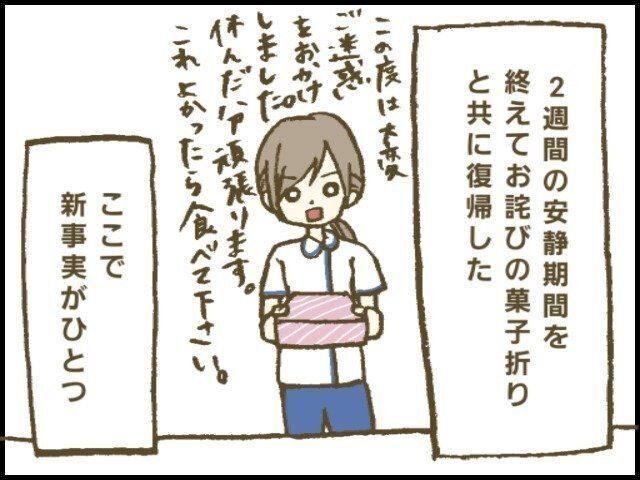 2週間の安静期間を
終えてお詫びの菓子折り
と共に復帰した
この度は大変
ご迷惑
をおかけ
しました。
休んだ分頑張ります。
これよかったら食べて下さい。
ここで
新事実がひとつ